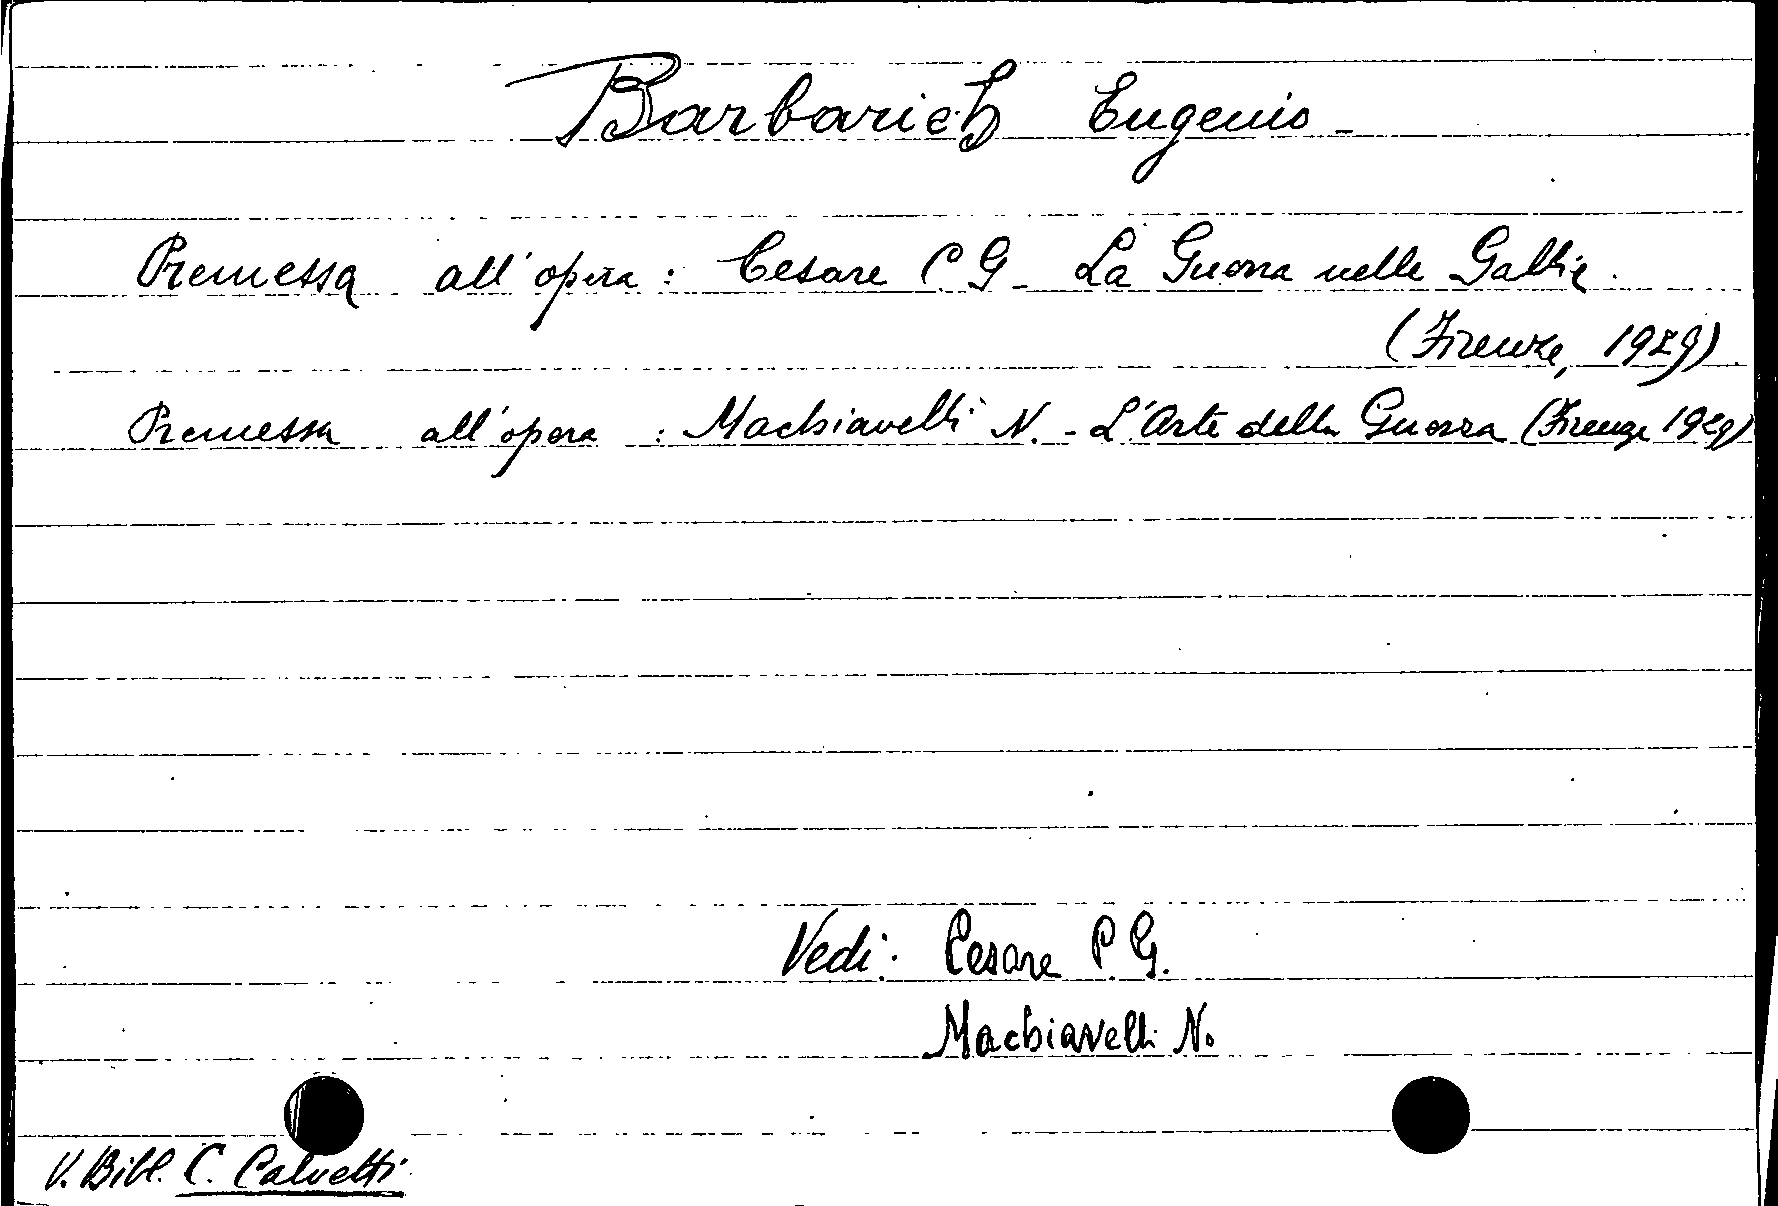 Barbarich Eugenio -
Premessa all'opera : Cesare C G - La Guerra nelle Gallie.
(Firenze, 1929)
Premessa all'opera : Machiavelli N. - L'Arte della Guerra (Firenze 1929)
Vedi: Cesare C. G.
Machiavelli N.
V. Bibl. C. Calvetti